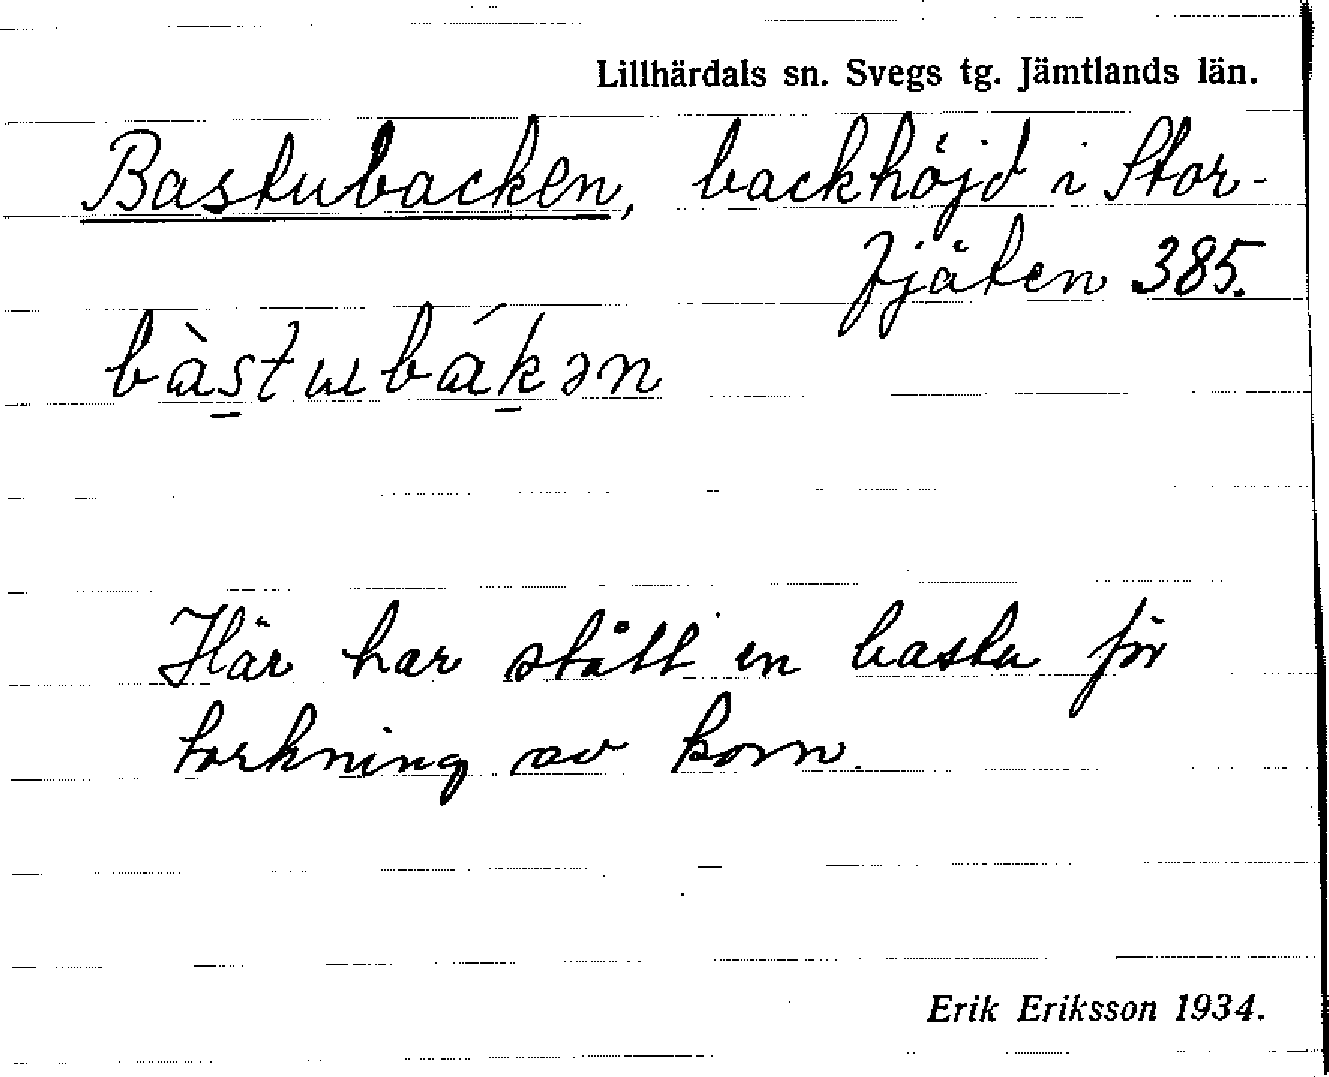 Lillhärdals sn. Svegs tg. Jämtlands län.
Bastubacken, backhöjd i Stor-
fjäten 385.
bàs̱tɯbáḵən
Här har stått en bastu för
torkning av korn.
Erik Eriksson 1934.